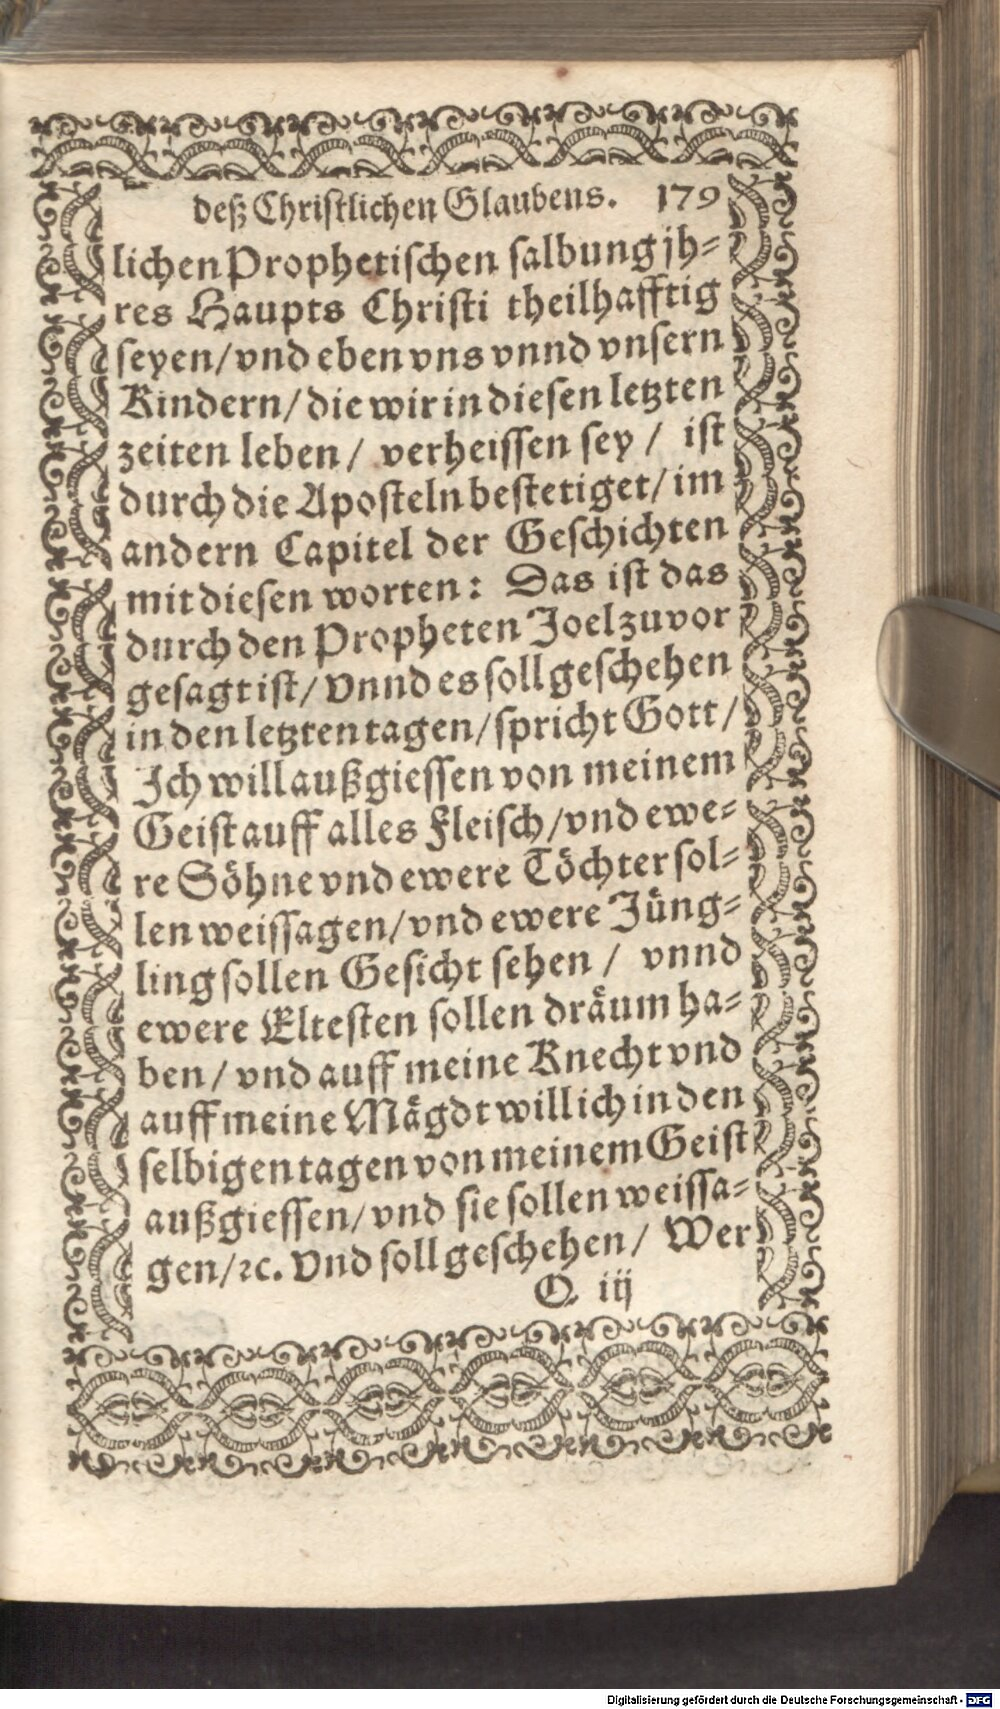 deß Christlichen Glaubens. 179
lichen Prophetischen salbung jh⸗
res Haupts Christi theilhafftig
seyen/ vnd eben vns vnnd vnsern
Kindern/ die wir in diesen letzten
zeiten leben/ verheissen sey/ ist
durch die Aposteln bestetiget/ im
andern Capitel der Geschichten
mit diesen worten: Das ist das
durch den Propheten Joel zuvor
gesagt ist/ Vnnd es soll geschehen
in den letzten tagen/ spricht Gott/
Ich will außgiessen von meinem
Geist auff alles Fleisch/ vnd ewe⸗
re Söhne vnd ewere Töchter sol⸗
len weissagen/ vnd ewere Jüng⸗
ling sollen Gesicht sehen/ vnnd
ewere Eltesten sollen dräum ha⸗
ben/ vnd auff meine Knecht vnd
auff meine Mägdt will ich in den
selbigen tagen von meinem Geist
außgiessen/ vnd sie sollen weissa⸗
gen/ ꝛc. Vnd soll geschehen/ Wer
O. iij
Digitalisierung gefördert durch die Deutsche Forschungsgemeinschaft - DFG